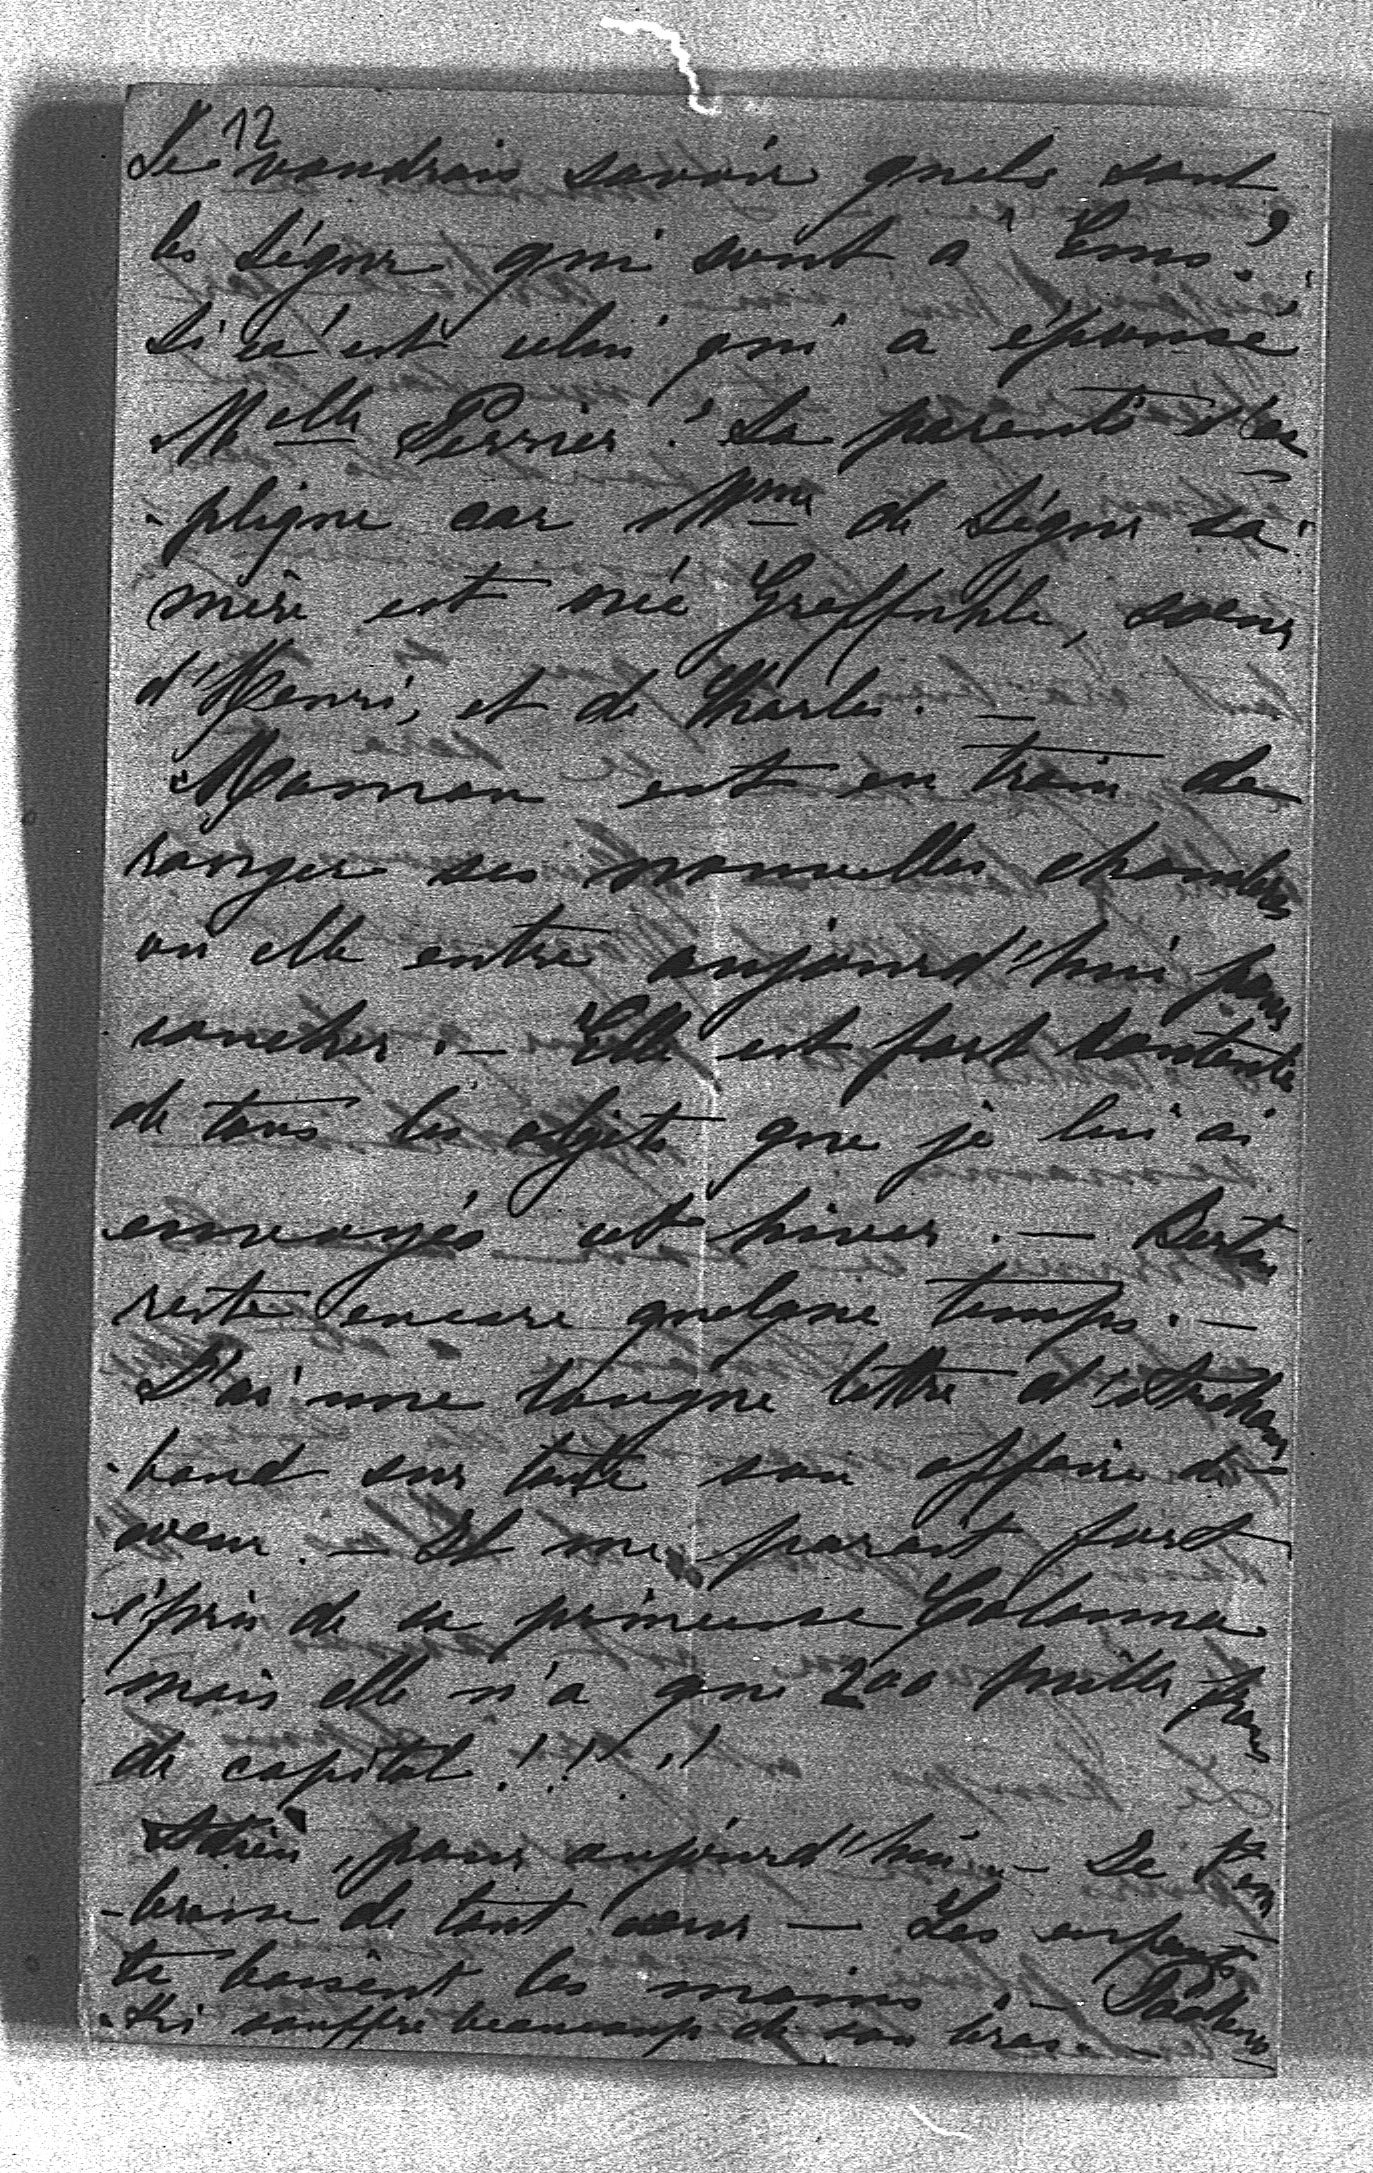 12
Je voudrais savoir quels sont
les Ségur qui sont à Ems?
Si c'est celui qui a épousé
Melle Perrier! La parenté s'ex
-plique car Mme de Ségur sa
mère est née Greffuhle, soeur
d'Henri, et de Charles. —
Maman est en train de
ranger ses nouvelles chambres
où elle entre aujourd'hui pour
coucher. — Elle est fort contente
de tous les objets que je lui ai
envoyés cet hiver. —
reste encore quelque temps. —
J'ai une longue lettre
sur toute son affaire de
coeur. — Il me paraît fort
épris de sa princesse Colonna
mais elle n'a que 200 mille frans
de capital!!!!
Adieu, pour aujourd'hui. — Je t'em
-brasse de tout coeur — Les enfants
te baisent les mains. —
souffre beaucoup de son bras. —